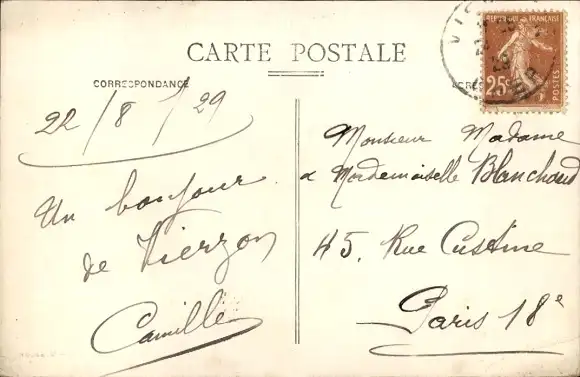 CARTE POSTALE
CORRESPONDANCE
REPUBLIQUE FRANÇAISE
25c
POSTES
22/8/29
Un bonjour
de Vierzon
Camille
Monsieur Madame
& Mademoiselle Blanchard
45. Rue Custine
Paris 18e